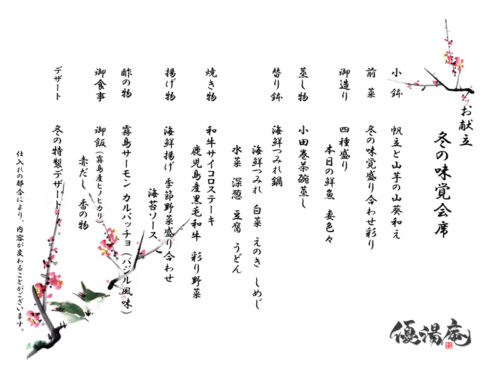 お献立
冬の味覚会席
小鉢 帆立と山芋の山葵和え
前菜 冬の味覚盛り合わせ彩り
御造り 四種盛り
本日の鮮魚 妻色々
蒸し物 小田巻茶碗蒸し
替り鉢 海鮮つみれ鍋
海鮮つみれ 白菜 えのき しめじ
水菜 深葱 豆腐 うどん
焼き物 和牛サイコロステーキ
鹿児島産黒毛和牛 彩り野菜
揚げ物 海鮮揚げ 季節野菜盛り合わせ
海苔ソース
酢の物 霧島サーモン カルパッチョ（バジル風味）
御食事 御飯（霧島産ヒノヒカリ）
赤だし 香の物
デザート 冬の特製デザート
仕入れの都合により、内容が変わることがございます。
優湯庵